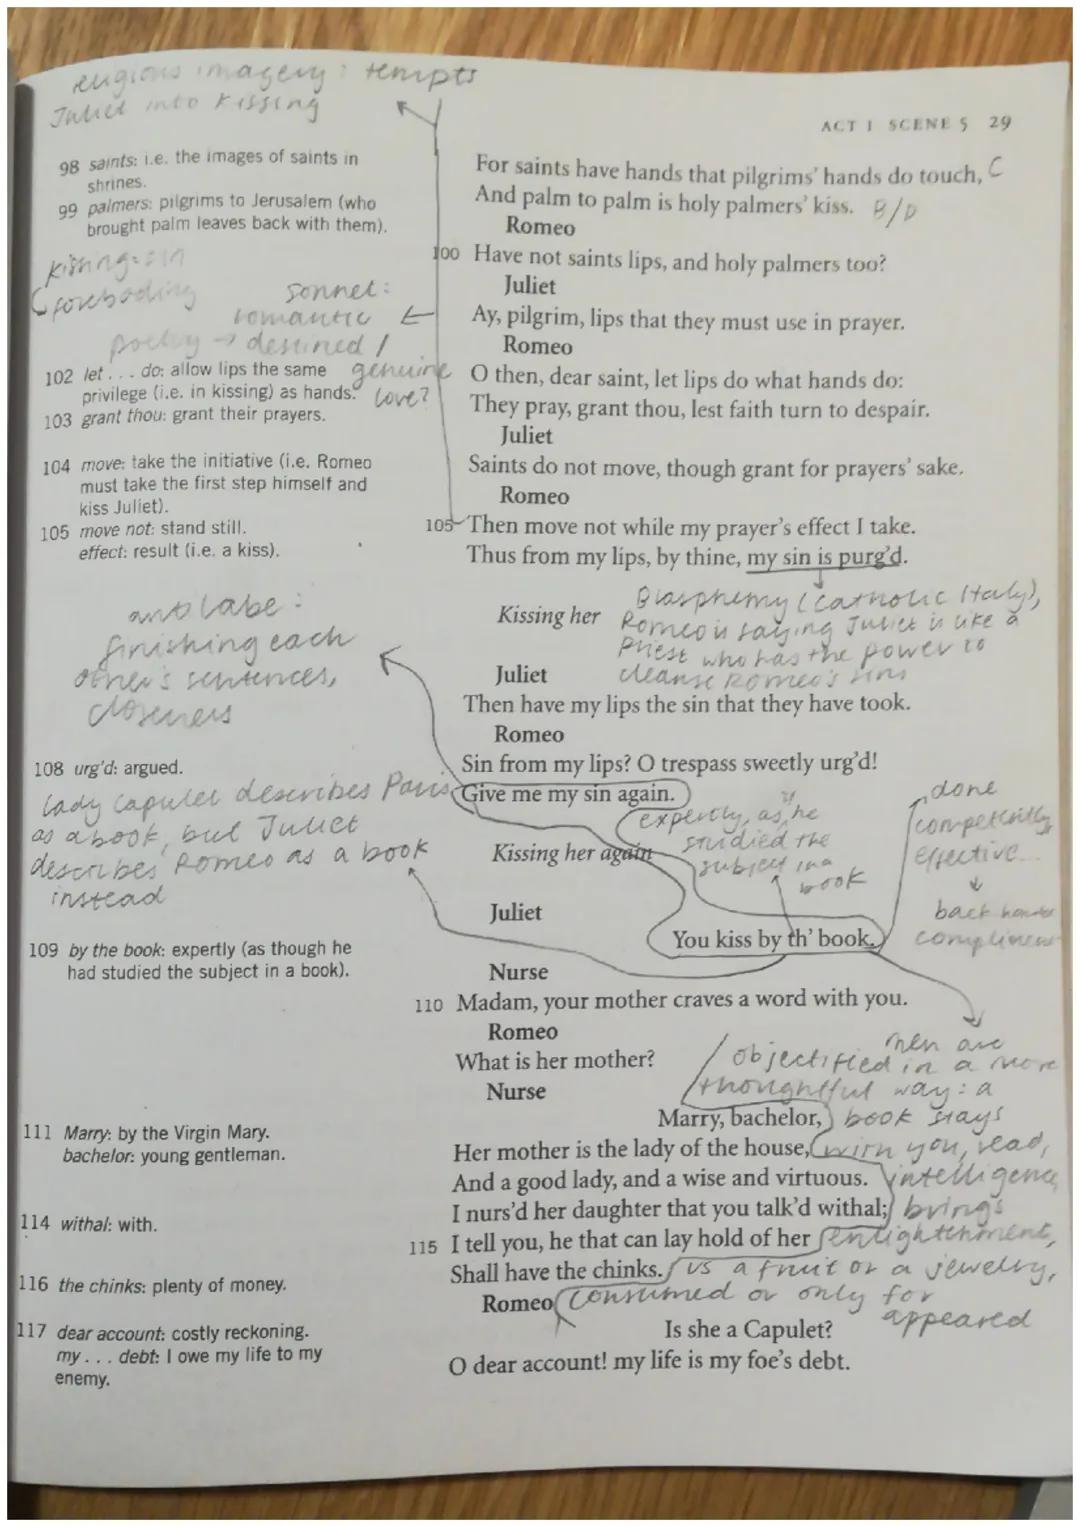 religious imagery: tempts
Juliet into kissing
ACT I SCENE 5 29
98 saints: i.e. the images of saints in
shrines.
99 palmers: pilgrims to Jerusalem (who
brought palm leaves back with them).
kissing = sin
foreboding
sonnet:
romantic
poetry → destined /
genuine
love?
102 let . . . do: allow lips the same
privilege (i.e. in kissing) as hands.
103 grant thou: grant their prayers.
104 move: take the initiative (i.e. Romeo
must take the first step himself and
kiss Juliet).
105 move not: stand still.
effect: result (i.e. a kiss).
antilabe:
finishing each
other's sentences,
closeness
108 urg'd: argued.
Lady Capulet describes Paris
as a book, but Juliet
describes Romeo as a book
instead
109 by the book: expertly (as though he
had studied the subject in a book).
111 Marry: by the Virgin Mary.
bachelor: young gentleman.
114 withal: with.
116 the chinks: plenty of money.
117 dear account: costly reckoning.
my . . . debt: I owe my life to my
enemy.
For saints have hands that pilgrims' hands do touch, C
And palm to palm is holy palmers' kiss. B/D
Romeo
100 Have not saints lips, and holy palmers too?
Juliet
Ay, pilgrim, lips that they must use in prayer.
Romeo
O then, dear saint, let lips do what hands do:
They pray, grant thou, lest faith turn to despair.
Juliet
Saints do not move, though grant for prayers' sake.
Romeo
105 Then move not while my prayer's effect I take.
Thus from my lips, by thine, my sin is purg'd.
Kissing her
Blasphemy (Catholic Italy),
Romeo is saying Juliet is like a
Priest who has the power to
cleanse Romeo's sins
Juliet
Then have my lips the sin that they have took.
Romeo
Sin from my lips? O trespass sweetly urg'd!
Give me my sin again.
expertly, as if he
studied the
subject in a
book
Kissing her again
done
competently
effective...
↓
back handed
compliment
Juliet
You kiss by th' book.
Nurse
110 Madam, your mother craves a word with you.
Romeo
What is her mother?
Nurse
men are
objectified in a more
thoughtful way: a
book stays
with you, read,
intelligence,
brings
enlightenment,
vs a fruit or a jewelry,
consumed or only for
appeared
Marry, bachelor,
Her mother is the lady of the house,
And a good lady, and a wise and virtuous.
I nurs'd her daughter that you talk'd withal;
115 I tell you, he that can lay hold of her
Shall have the chinks.
Romeo
Is she a Capulet?
O dear account! my life is my foe's debt.